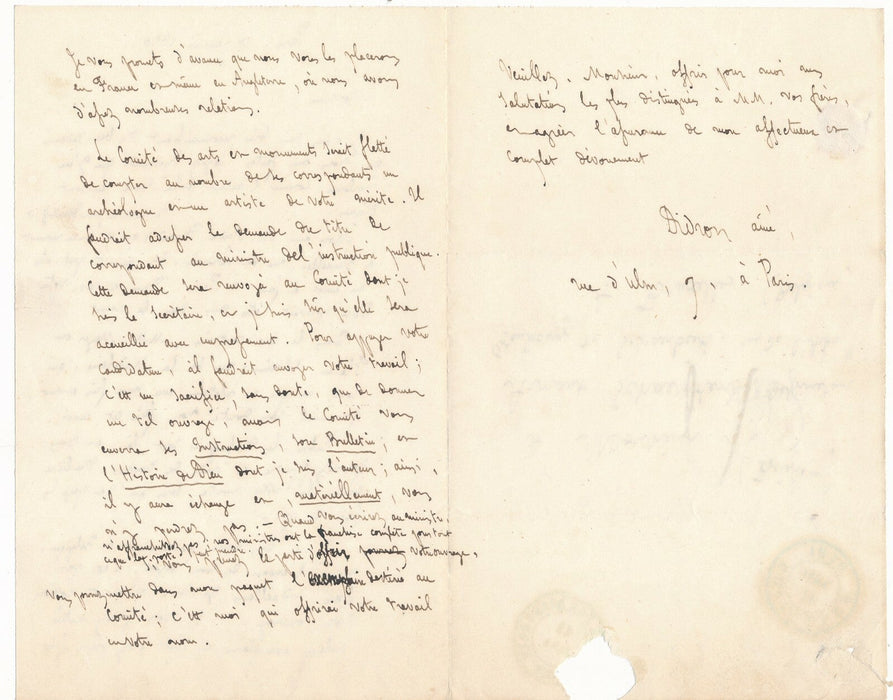 Je vous promets d'avance que nous vous les placerons
en France et même en Angleterre, où nous avons
d'assez nombreuses relations.
Le Comité des arts et monuments serait flatté
de compter au nombre de ses correspondants un
archéologue et un artiste de votre mérite. Il
faudrait adresser la demande du titre de
correspondant au ministre de l'instruction publique.
Cette demande sera renvoyée au Comité dont je
suis le Secrétaire, et je suis sûr qu'elle sera
accueillie avec empressement. Pour appuyer votre
candidature, il faudrait envoyer votre travail ;
c'est un sacrifice, sans doute, que de donner
un tel ouvrage, mais le Comité vous
enverra ses Instructions, son Bulletin, et
l'Histoire de Dieu dont je suis l'auteur ; ainsi,
il y aura échange et, matériellement, vous
n'y perdrez pas. — Quand vous écrirez au ministre,
n'affranchissez pas ; nos ministres ont la franchise complète pour tout
ce que la poste peut prendre.
Vous le perte d'offrir votre ouvrage,
vous pourrez mettre dans mon paquet l'exemplaire destiné au
Comité ; c'est moi qui offrirai votre travail
en votre nom.
Veuillez, Monsieur, offrir pour moi mes
salutations les plus distinguées à M.M. vos frères,
et agréer l'assurance de mon affectueux et
complet dévouement
Didron aîné,
rue d'Ulm, 7, à Paris.